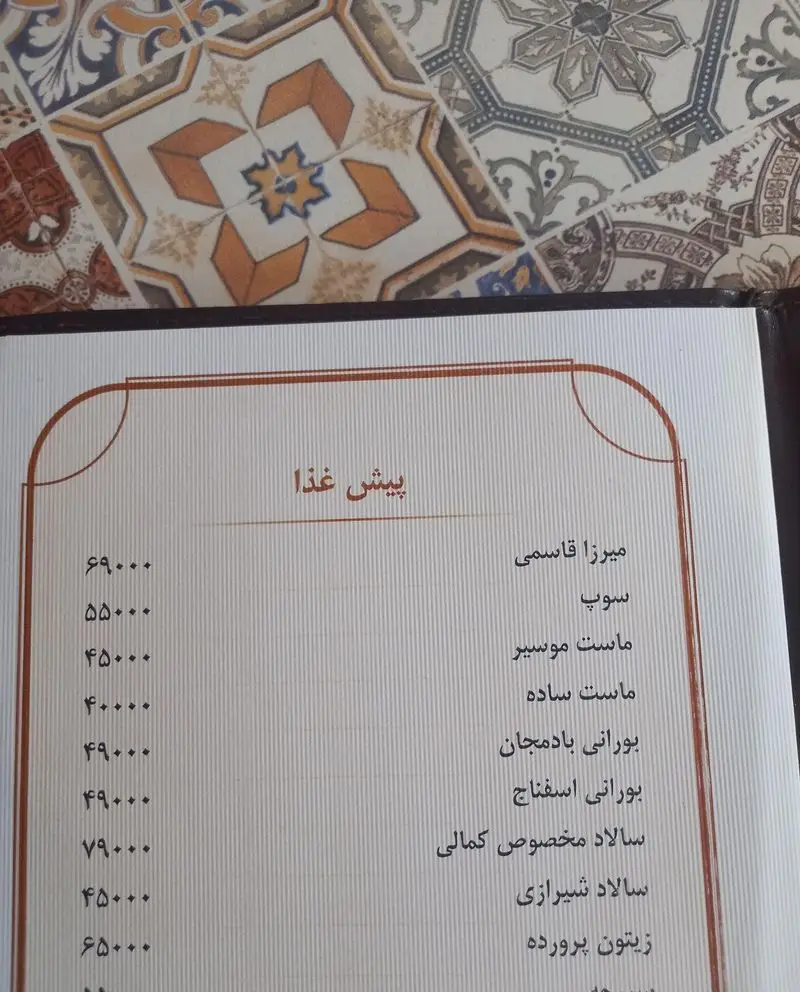 پیش غذا
میرزا قاسمی ۶۹۰۰۰
سوپ ۵۵۰۰۰
ماست موسیر ۴۵۰۰۰
ماست ساده ۴۰۰۰۰
بورانی بادمجان ۴۹۰۰۰
بورانی اسفناج ۴۹۰۰۰
سالاد مخصوص کمالی ۷۹۰۰۰
سالاد شیرازی ۴۵۰۰۰
زیتون پرورده ۶۵۰۰۰